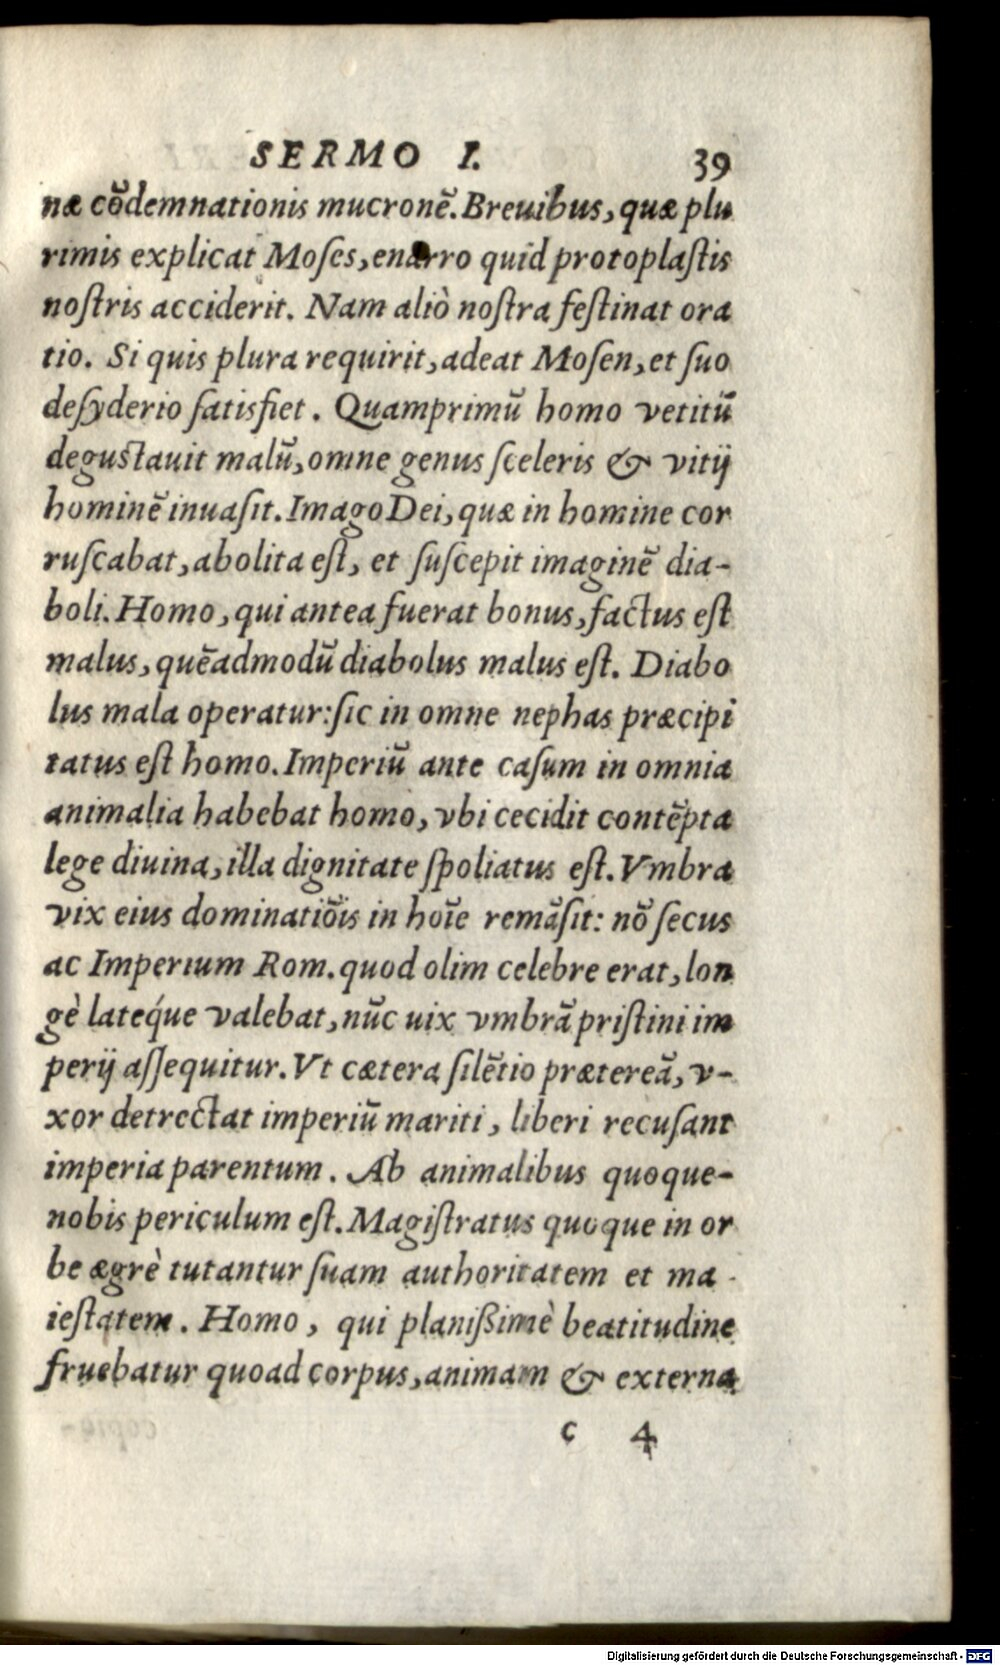 SERMO I. 39
næ cõdemnationis mucronẽ. Breuibus, quæ plu
rimis explicat Moses, enarro quid protoplastis
nostris acciderit. Nam aliò nostra festinat ora
tio. Si quis plura requirit, adeat Mosen, et suo
desyderio satisfiet. Quamprimũ homo vetitũ
degustauit malũ, omne genus sceleris & vitij
hominẽ inuasit. Imago Dei, quæ in homine cor
ruscabat, abolita est, et suscepit imaginẽ dia-
boli. Homo, qui antea fuerat bonus, factus est
malus, quẽadmodũ diabolus malus est. Diabo
lus mala operatur: sic in omne nephas præcipi
tatus est homo. Imperiũ ante casum in omnia
animalia habebat homo, vbi cecidit contẽpta
lege diuina, illa dignitate spoliatus est. Vmbra
vix eius dominatiõis in hoĩe remãsit: nõ secus
ac Imperium Rom. quod olim celebre erat, lon
gè latéque valebat, nũc uix vmbrã pristini im
perij assequitur. Vt cætera silẽtio prætereã, v-
xor detrectat imperiũ mariti, liberi recusant
imperia parentum. Ab animalibus quoque-
nobis periculum est. Magistratus quoque in or
be ægrè tutantur suam authoritatem et ma-
iestatem. Homo, qui planißimè beatitudine
fruebatur quoad corpus, animam & externa
c 4
Digitalisierung gefördert durch die Deutsche Forschungsgemeinschaft - DFG